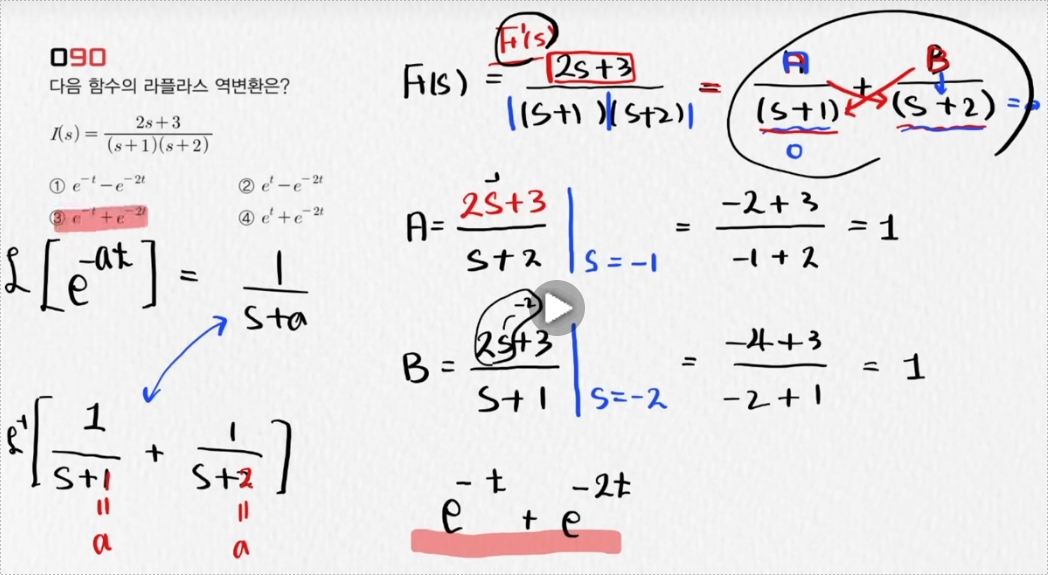 090
다음 함수의 라플라스 역변환은?
I(s) = \frac{2s+3}{(s+1)(s+2)}
① e^{-t} - e^{-2t}
② e^{t} - e^{-2t}
③ e^{-t} + e^{-2t}
④ e^{t} + e^{-2t}
ℒ[e^{-at}] = \frac{1}{s+a}
ℒ^{-1}[\frac{1}{s+1} + \frac{1}{s+2}]
= =
a a
F'(s)
F(s) = \frac{2s+3}{(s+1)(s+2)} = \frac{A}{(s+1)} + \frac{B}{(s+2)} =
0
A = \frac{2s+3}{s+2} | s=-1 = \frac{-2+3}{-1+2} = 1
-2
B = \frac{2s+3}{s+1} | s=-2 = \frac{-4+3}{-2+1} = 1
e^{-t} + e^{-2t}